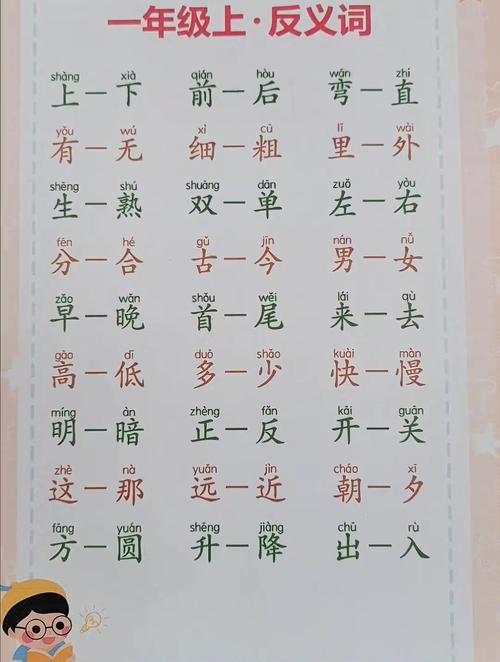 一年级上·反义词
shàng xià qián hòu wān zhí
上一下 前一后 弯一直
yǒu wú xì cū lǐ wài
有一无 细一粗 里一外
shēng shú shuāng dān zuǒ yòu
生一熟 双一单 左一右
fēn hé gǔ jīn nán nǚ
分一合 古一今 男一女
zǎo wǎn shǒu wěi lái qù
早一晚 首一尾 来一去
gāo dī duō shǎo kuài màn
高一低 多一少 快一慢
míng àn zhèng fǎn kāi guān
明一暗 正一反 开一关
zhè nà yuǎn jìn cháo xī
这一那 远一近 朝一夕
fāng yuán shēng jiàng chū rù
方一圆 升一降 出一入